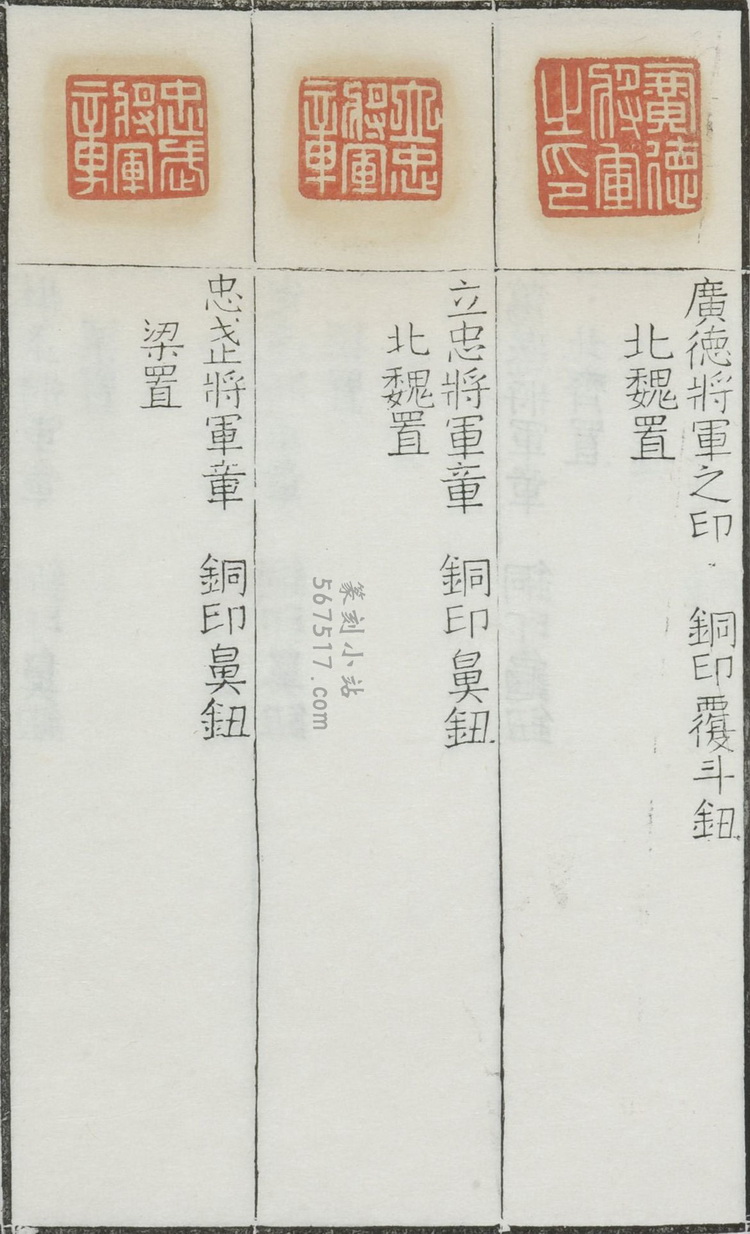 廣德將軍之印
廣德將軍之印 銅印覆斗鈕
北魏置
立忠將軍章
立忠將軍章 銅印鼻鈕
北魏置
忠武將軍章
忠武將軍章 銅印鼻鈕
梁置
篆刻小站
567517.com